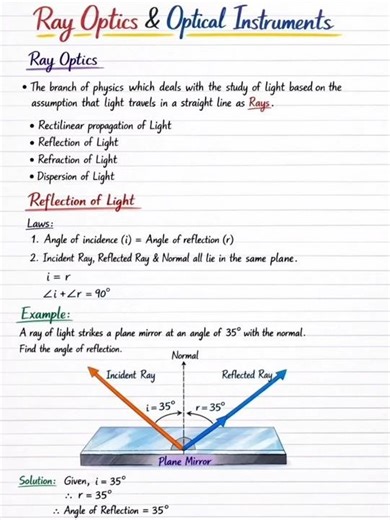 Ray Optics & Optical Instruments
Ray Optics
• The branch of physics which deals with the study of light based on the
assumption that light travels in a straight line as Rays.
• Rectilinear propagation of Light
• Reflection of Light
• Refraction of Light
• Dispersion of Light
Reflection of Light
Laws:
1. Angle of incidence (i) = Angle of reflection (r)
2. Incident Ray, Reflected Ray & Normal all lie in the same plane.
i = r
∠i + ∠r = 90°
Example:
A ray of light strikes a plane mirror at an angle of 35° with the normal.
Find the angle of reflection.
Normal
Incident Ray
Reflected Ray
i = 35°
r = 35°
Plane Mirror
Solution: Given, i = 35°
∴ r = 35°
∴ Angle of Reflection = 35°